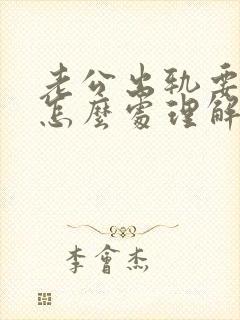 老公出軌要
怎麼處理解
李會杰